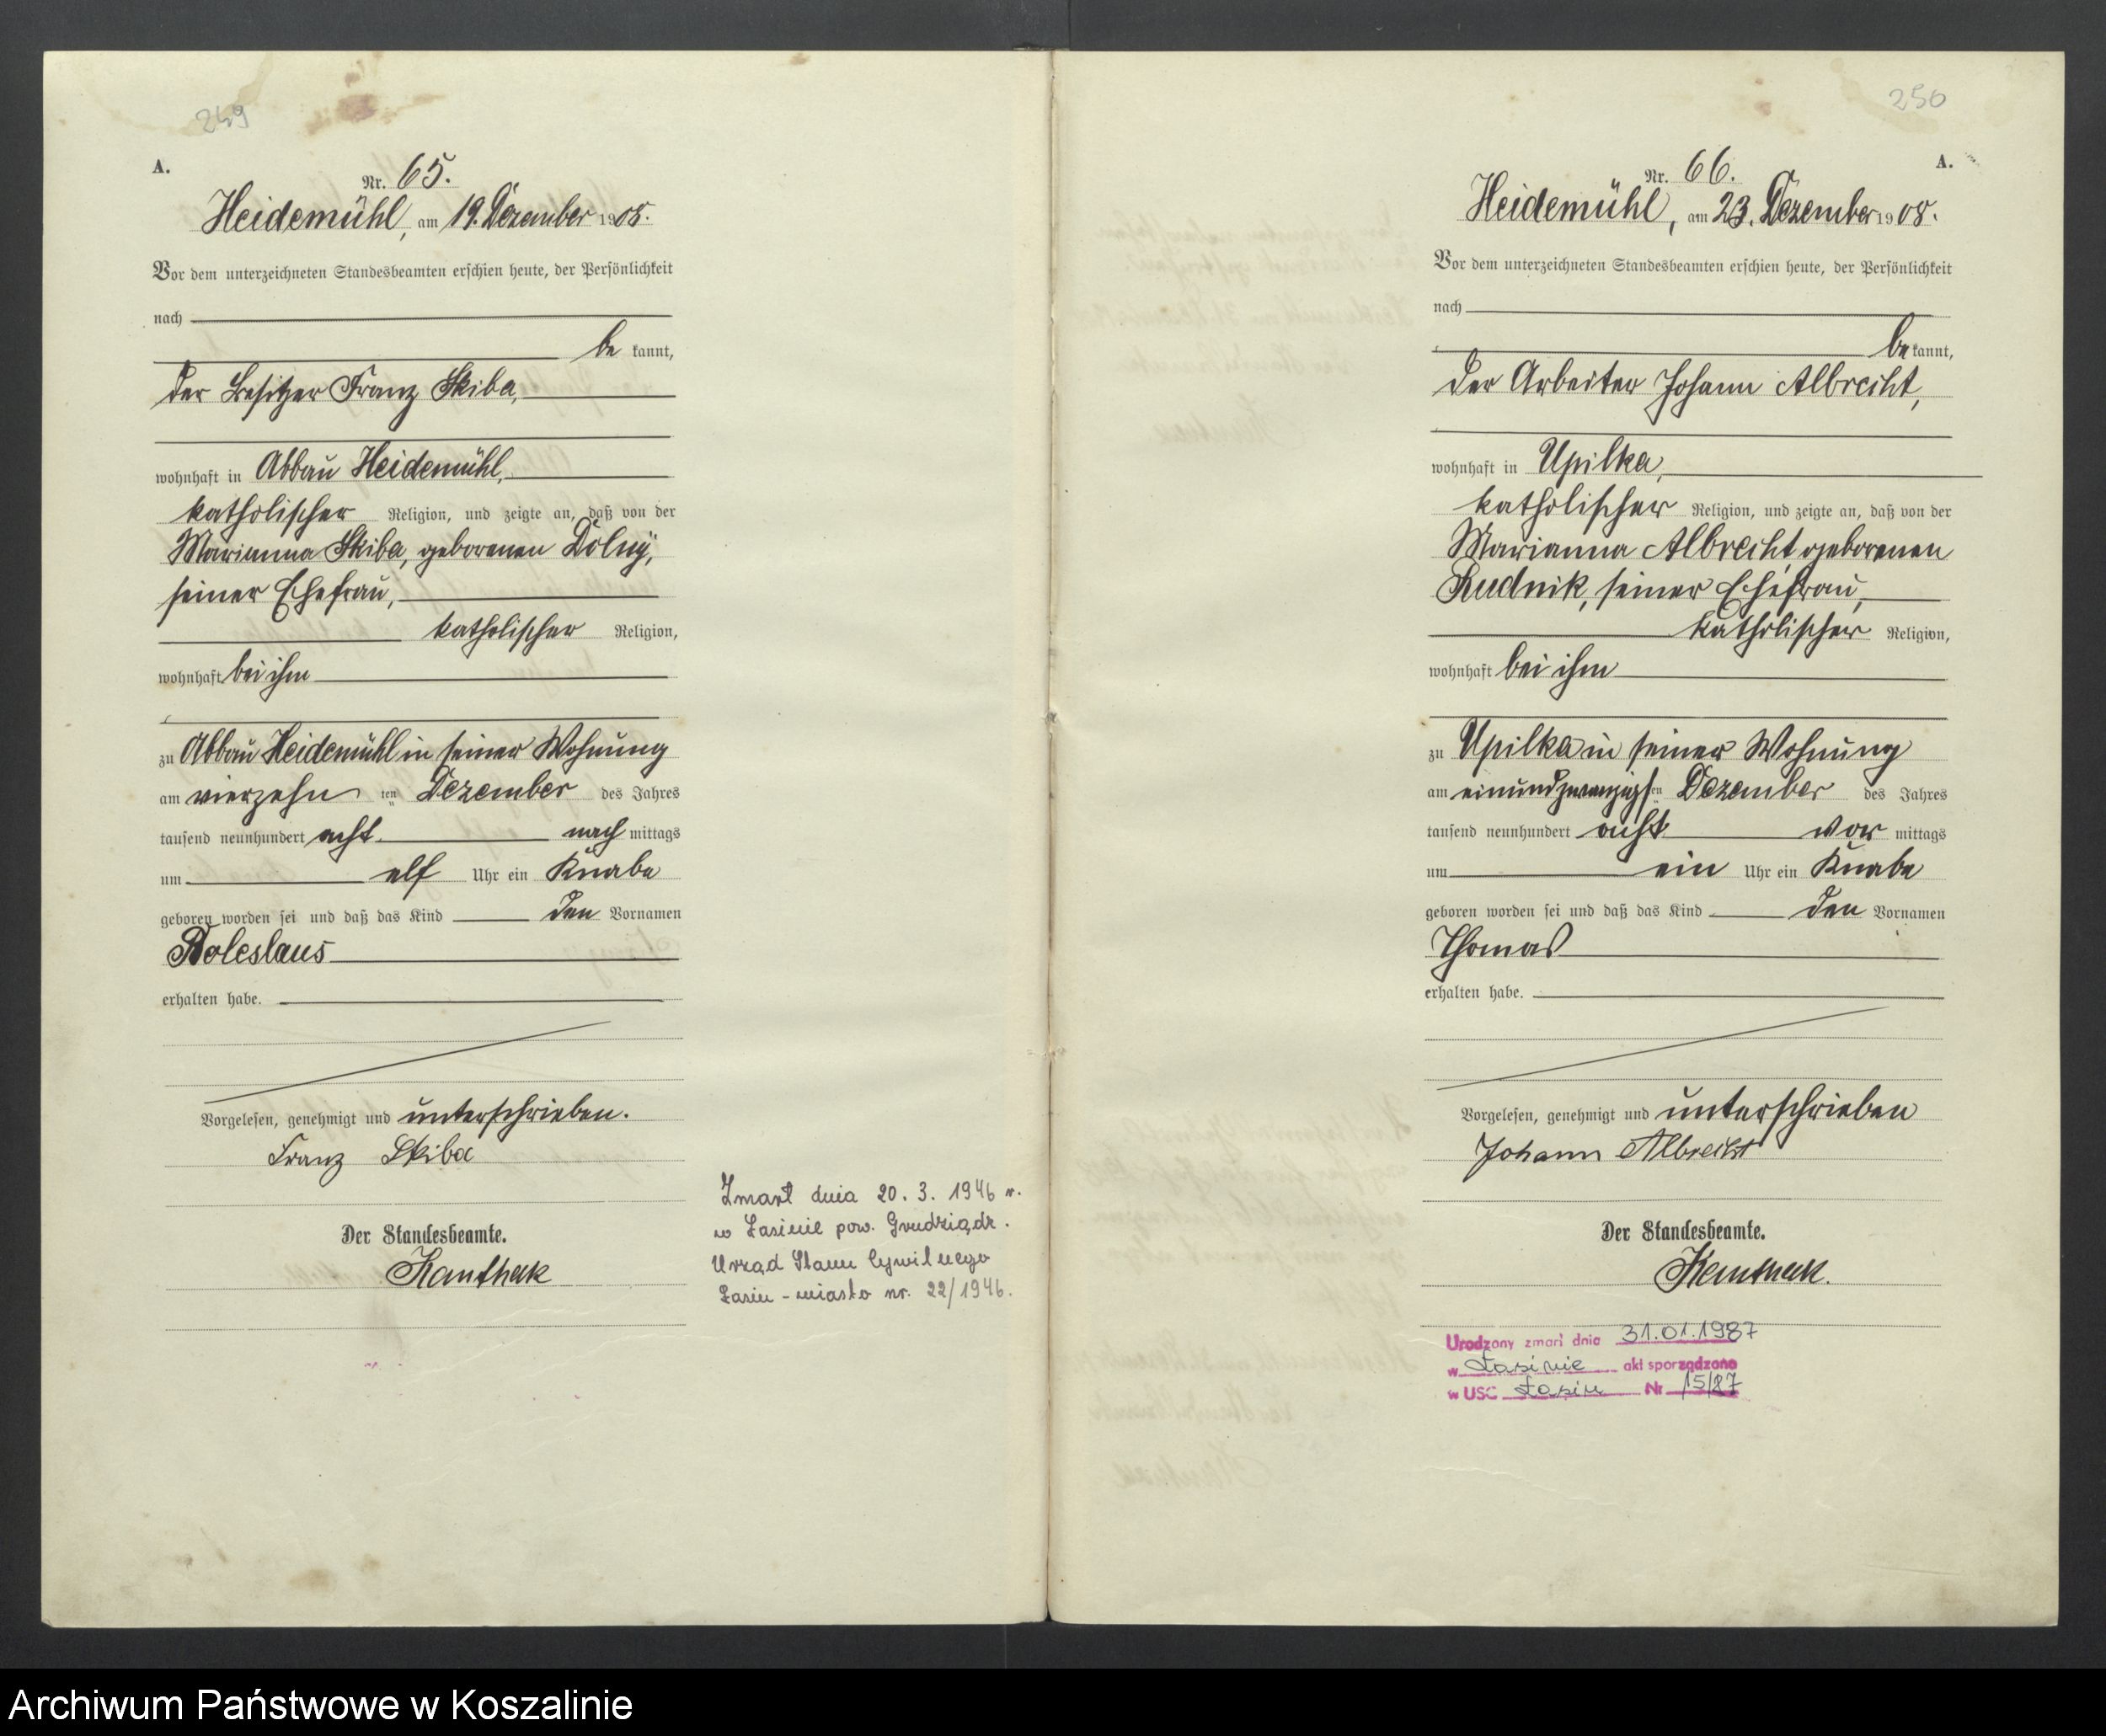 249
A.
Nr. 65.
Heidemühl, am 19. Dezember 1908.
Vor dem unterzeichneten Standesbeamten erschien heute, der Persönlichkeit
nach
be kannt,
der Besitzer Franz Skiba,
wohnhaft in Abbau Heidemühl,
katholischer Religion, und zeigte an, daß von der
Marianna Skiba, geborenen Dolny,
seiner Ehefrau,
katholischer Religion,
wohnhaft bei ihm
zu Abbau Heidemühl in seiner Wohnung
am vierzehn ten Dezember des Jahres
tausend neunhundert acht nach mittags
um elf Uhr ein Knabe
geboren worden sei und daß das Kind den Vornamen
Boleslaus
erhalten habe.
Vorgelesen, genehmigt und unterschrieben.
Franz Skiba
Der Standesbeamte.
Kanthak
Zmarł dnia 20. 3. 1946 r.
w Łasinie pow. Grudziądz.
Urząd Stanu Cywilnego
Łasin - miasto nr. 22/1946.
250
A.
Nr. 66.
Heidemühl, am 23. Dezember 1908.
Vor dem unterzeichneten Standesbeamten erschien heute, der Persönlichkeit
nach
be kannt,
der Arbeiter Johann Albrecht,
wohnhaft in Upilka,
katholischer Religion, und zeigte an, daß von der
Marianna Albrecht, geborenen
Rudnik, seiner Ehefrau,
katholischer Religion,
wohnhaft bei ihm
zu Upilka in seiner Wohnung
am einundzwanzigsten Dezember des Jahres
tausend neunhundert acht vor mittags
um ein Uhr ein Knabe
geboren worden sei und daß das Kind den Vornamen
Thomas
erhalten habe.
Vorgelesen, genehmigt und unterschrieben
Johann Albrecht
Der Standesbeamte.
Kanthak.
Urodzony zmarł dnia 31.01.1987
w Łasinie akt sporządzono
w USC Łasin Nr 15/87
Archiwum Państwowe w Koszalinie